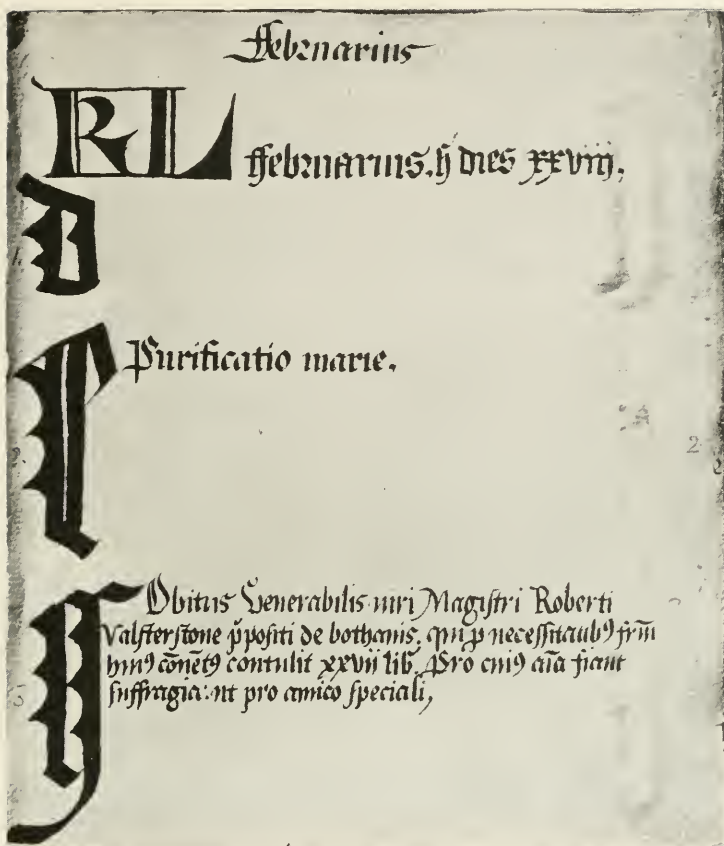 ffebruarius
KL
ffebruarius. hȝ dies xxviij.
D
1
Purificatio marie.
E
2
2
Obitus Venerabilis uiri Magistri Roberti
Valsterstone p̄positi de bothanis. qui p̱ necessitatibꝰ frm̄
huiꝰ cōuētꝰ contulit xxvii lib. Pro cuiꝰ aīa fiant
suffragia: ut pro amico speciali,
3